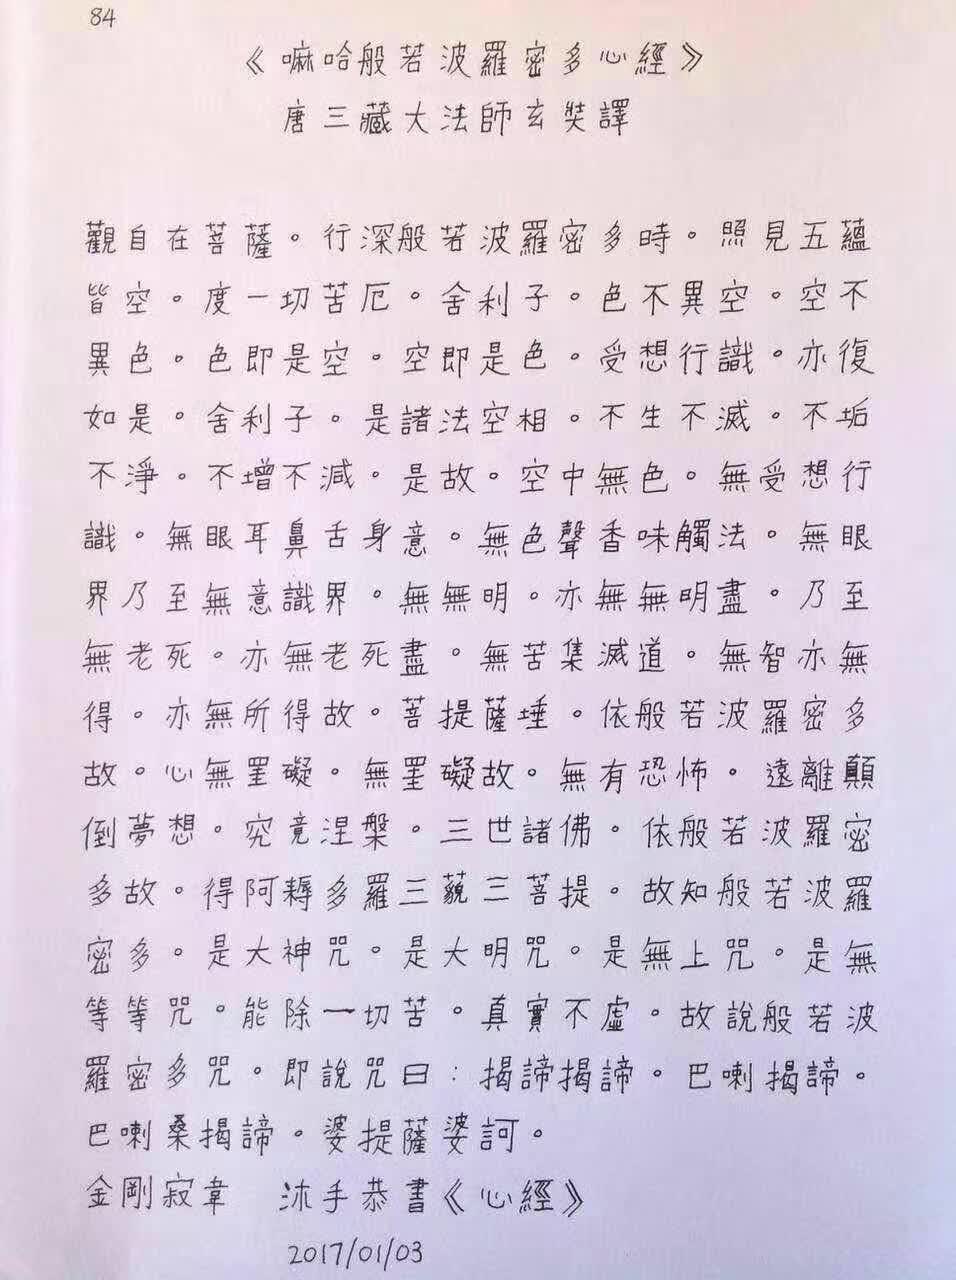 84
《嘛哈般若波羅密多心經》
唐三藏大法師玄奘譯
觀自在菩薩。行深般若波羅密多時。照見五蘊
皆空。度一切苦厄。舍利子。色不異空。空不
異色。色即是空。空即是色。受想行識。亦復
如是。舍利子。是諸法空相。不生不滅。不垢
不淨。不增不減。是故。空中無色。無受想行
識。無眼耳鼻舌身意。無色聲香味觸法。無眼
界乃至無意識界。無無明。亦無無明盡。乃至
無老死。亦無老死盡。無苦集滅道。無智亦無
得。亦無所得故。菩提薩埵。依般若波羅密多
故。心無罣礙。無罣礙故。無有恐怖。遠離顛
倒夢想。究竟涅槃。三世諸佛。依般若波羅密
多故。得阿耨多羅三藐三菩提。故知般若波羅
密多。是大神咒。是大明咒。是無上咒。是無
等等咒。能除一切苦。真實不虛。故說般若波
羅密多咒。即說咒曰：揭諦揭諦。巴喇揭諦。
巴喇桑揭諦。婆提薩婆訶。
金剛寂韋 沐手恭書《心經》
2017/01/03